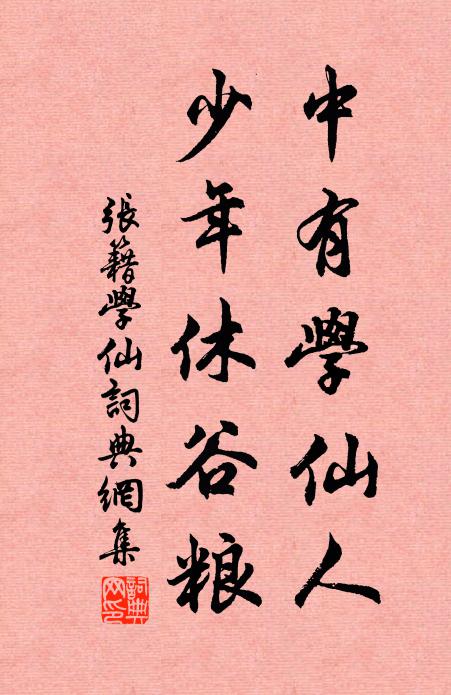 中有學仙人
少年休谷粮
張籍學仙詞典網集
詞典網印